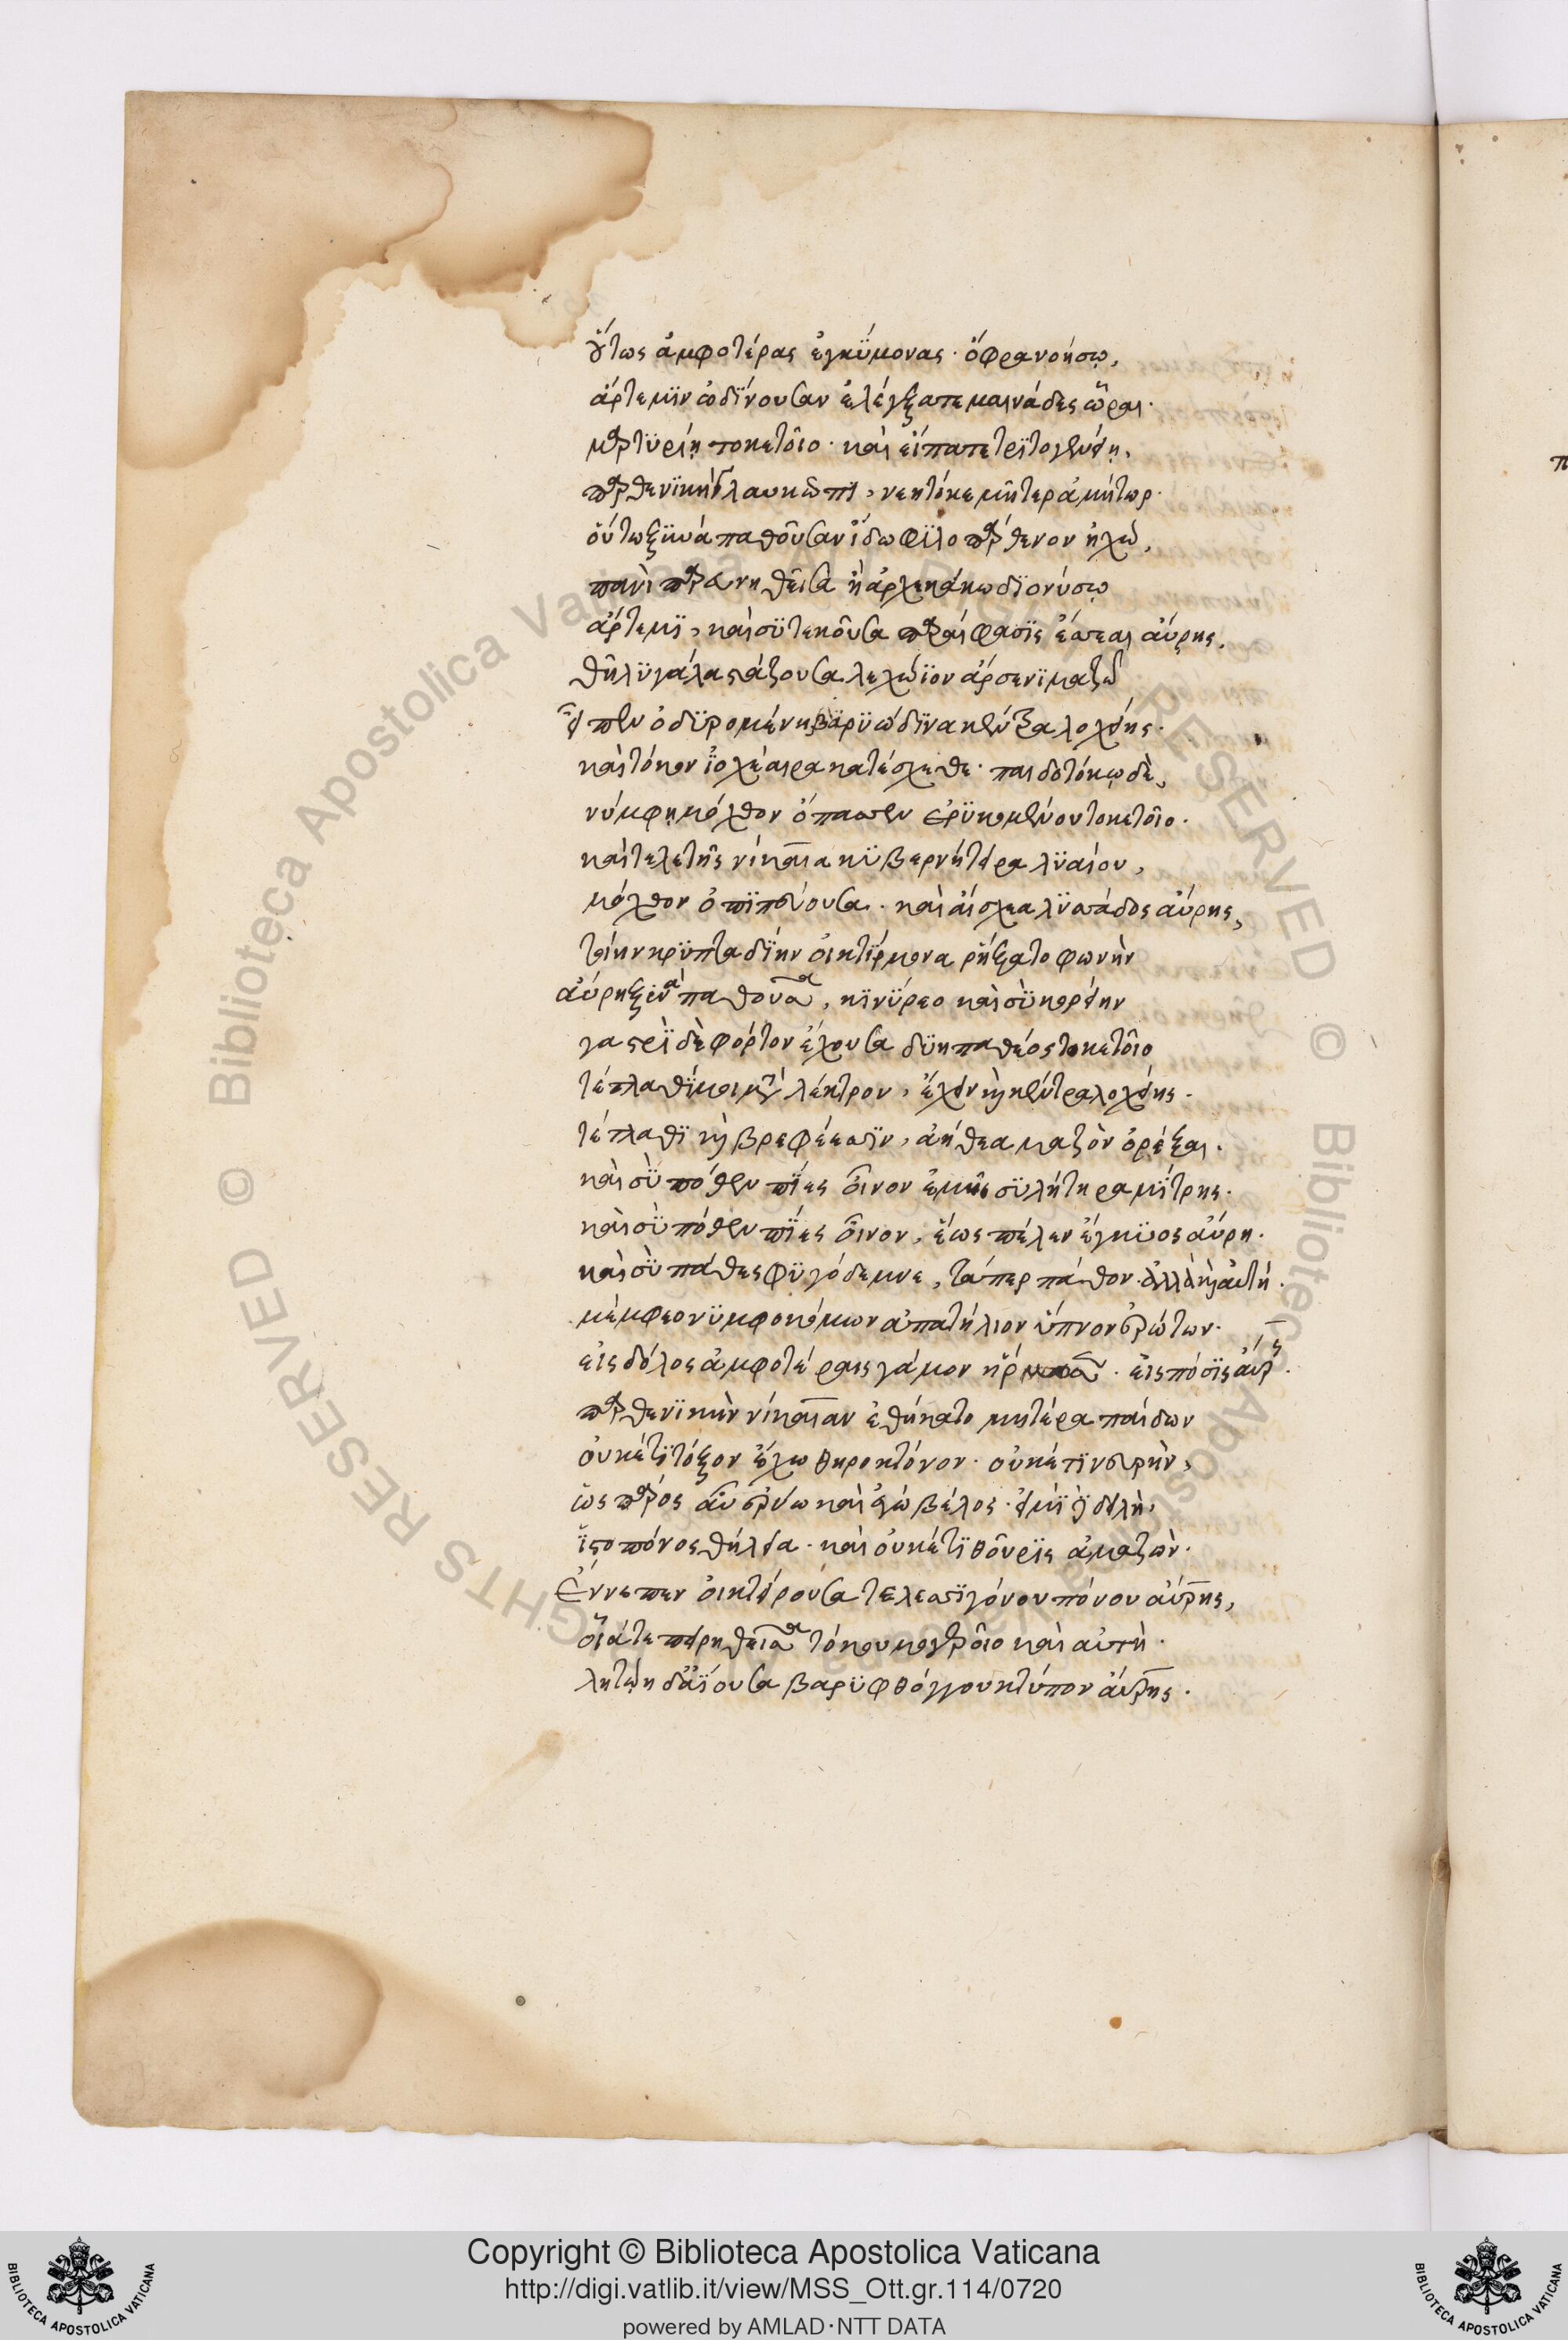 οὕτως ἀμφοτέρας ἐγκύμονας· ὄφρα νοήσω,
ἄρτεμιν ὠδίνουσαν ἐλέγξατε μαινάδες ὧραι·
μαρτυρίη τοκετοῖο· καὶ εἴπατε τριτογενείη,
παρθενικὴ γλαυκῶπι, νέη τέκε μητέρ' ἀμήτωρ·
οὕτω ξυνὰ παθοῦσαν ἴδω φιλοπάρθενον ἠχώ,
πανὶ παρευνηθεῖσα ἢ ἀρχεκάκω διονύσῳ
ἄρτεμι, καὶ σὺ τεκοῦσα παραίφασις ἔσσεαι αὔρης,
θῆλυ γάλα στάζουσα λεχώιον ἄρσενι μαζῷ
εἶπεν ὀδυρομένη βαρυώδινα κέντρα λοχείης·
καὶ τόκον ἰοχέαιρα κατέσχεθε· παιδοτόκῳ δὲ,
νύμφῃ μόχθον ὄπασσεν ἐρυκομένου τοκετοῖο·
καὶ τελετῆς νίκαια κυβερνήτειρα λυαίου,
μόχθον ὀπιπεύουσα· καὶ αἴσχεα λυσσάδος αὔρης,
τοίην κρυπταδίην οἰκτίρμονα ῥήξατο φωνὴν
αὔρη ξυνὰ παθοῦσα, κινύρεο καὶ σὺ κορείην
γαστρὶ δὲ φόρτον ἔχουσα δυηπαθέος τοκετοῖο
τέτλαθί μοι μετὰ λέκτρον, ἔχειν καὶ κέντρα λοχείης·
τέτλαθι καὶ βρεφέεσσιν, ἀήθεα μαζὸν ὀρέξαι·
καὶ σὺ πόθεν πίες οἶνον ἐμῆς συλήτηρα μίτρης·
καὶ σὺ πόθεν πίες οἶνον, ἕως πέλεν ἔγκυος αὔρη·
καὶ σὺ πάθες φυγόδεμνε, τάπερ πάθον· ἀλλὰ καὶ αὐτὴ·
μέμφεο νυμφοκόμων ἀπατήλιον ὕπνον ἐρώτων·
εἷς δόλος ἀμφοτέραις γάμον ἥρμοσα· εἷς πόσις αὔρης·
παρθενικὴν νίκαιαν ἐθήκατο μητέρα παίδων
οὐκέτι τόξον ἔχω θηροκτόνον· οὐκέτι νευρὴν,
ὡς πάρος αὖ ἐρύω καὶ ἐγὼ βέλος· εἰμὶ δειλὴ,
ἱστοπόνος θήλεια· καὶ οὐκέτι θοῦρις ἀμαζὼν·
ἔννεπεν οἰκτείρουσα τελεσσιγόνου πόνον αὔρης,
οἷά τε πειρηθεῖσα τόκου μογεροῖο καὶ αὐτὴ·
λητώη δ' ἀΐουσα βαρυφθόγγου κτύπον αὔρης·
Copyright © Biblioteca Apostolica Vaticana
http://digi.vatlib.it/view/MSS_Ott.gr.114/0720
powered by AMLAD·NTT DATA